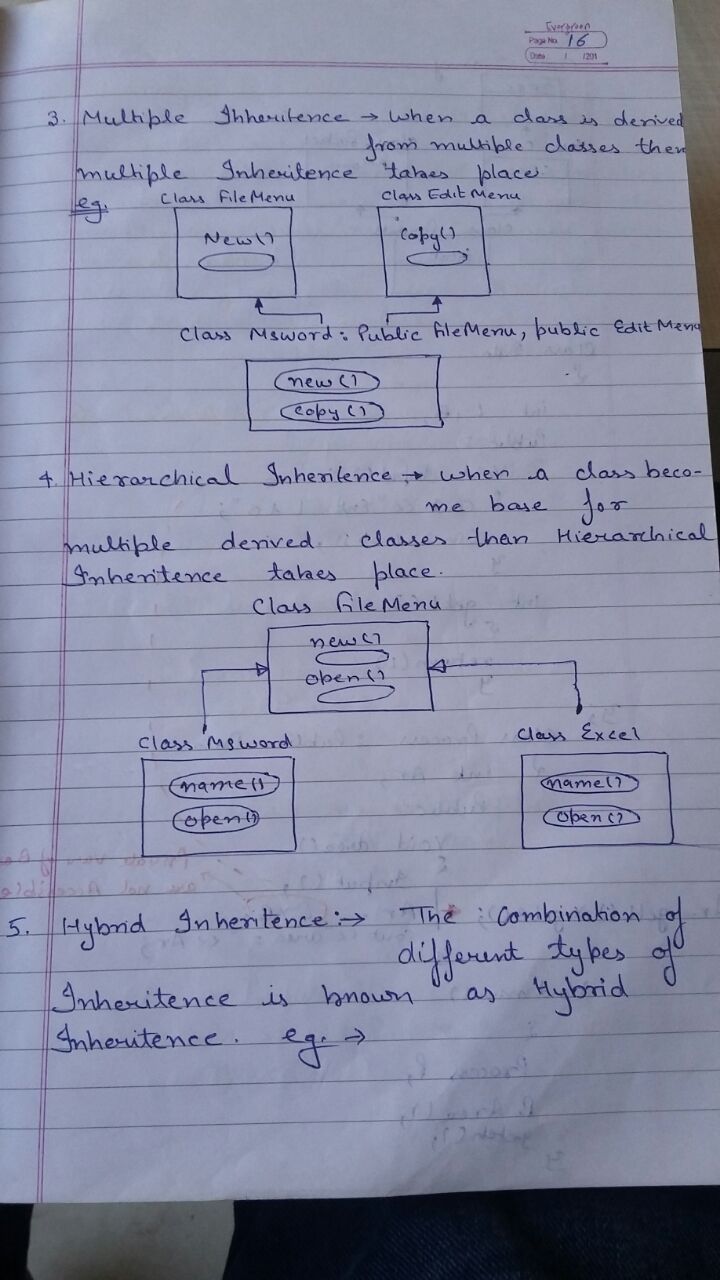 Evergreen
Page No. 16
Date / /201
3. Multiple Inheritence → When a class is derived
from multiple classes then
multiple Inheritence takes place
eg. Class FileMenu Class Edit Menu
New() Copy()
Class Msword : Public fileMenu, public Edit Menu
new()
copy()
4. Hierarchical Inheritence → when a class beco-
me base for
multiple derived classes than Hierarchical
Inheritence takes place.
Class fileMenu
new()
open()
Class Msword Class Excel
name() name()
open() open()
5. Hybrid Inheritence :→ The combination of
different types of
Inheritence is known as Hybrid
Inheritence. eg. →